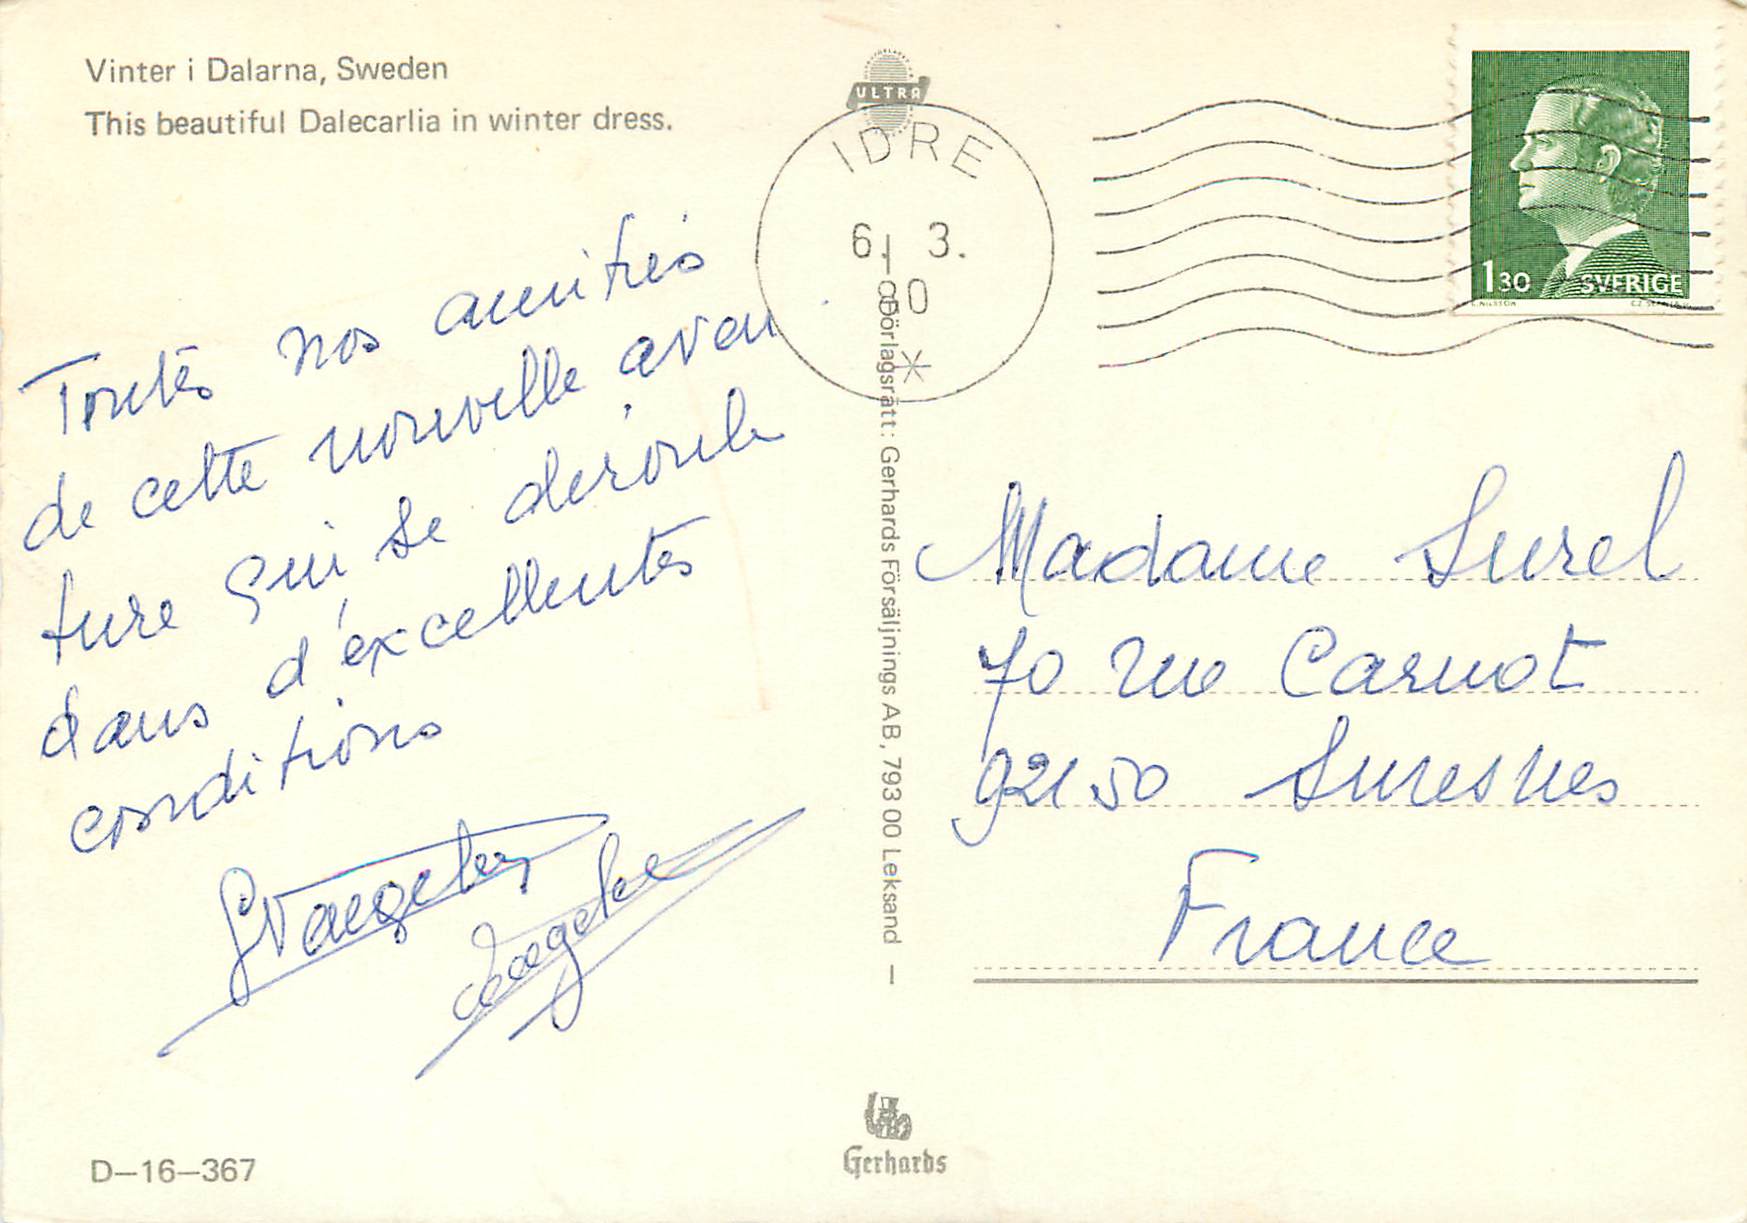 Vinter i Dalarna, Sweden
This beautiful Dalecarlia in winter dress.
ULTRA
IDRE
6. 3.
80
*
1 30 SVERIGE
Toutes nos amitiés
de cette nouvelle aven
ture qui se déroule
dans d'excellentes
conditions
Madame Surel
70 rue Carnot
92150 Suresnes
France
Förlagsrätt: Gerhards Försäljnings AB, 793 00 Leksand
Gerhards
D–16–367